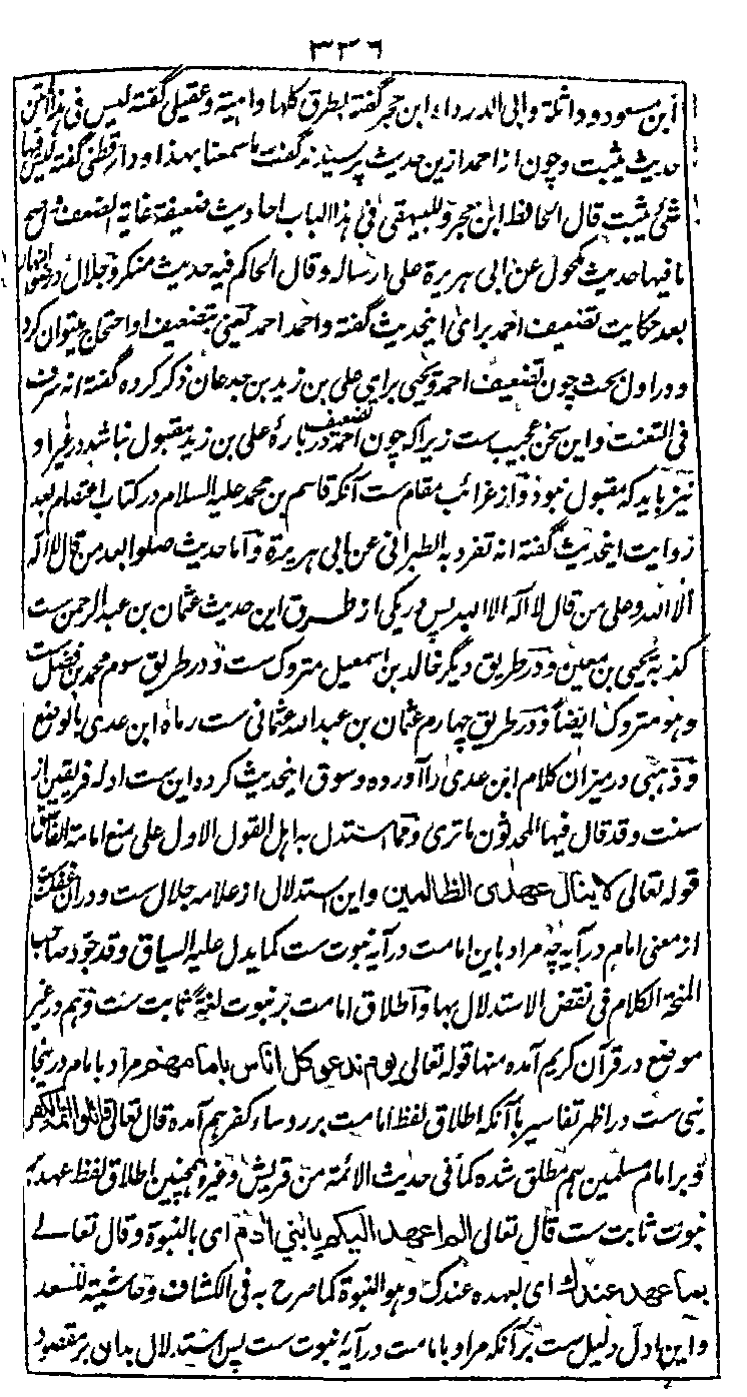 ٣٣٦
ابن مسعود و واثلة وابی الدرداء ابن حجر گفته بطرق كلها واهية و عقیلی گفته لیس فی هذا المتن
حدیث یثبت وچون از احمد ازین حدیث پرسیدند گفت ما سمعنا بهذا و دارقطنی گفته لیس فیها
شئ یثبت قال الحافظ ابن حجر وللبیهقی فی هذا الباب احادیث ضعیفة غایة الضعف واصح
ما فیها حدیث مکحول عن ابی هریرة علی ارساله وقال الحاکم فیه حدیث منکر و جلال در ضوء النهار
بعد حکایت تضعیف احمد برای اینحدیث گفته و احمد احمد یعنی بتضعیف او احتجاج میتوان کرد
و در اول بحث چون تضعیف احمد ویحیی برای علی بن زید بن جدعان ذکر کرده گفته انه سرف
فی التعنت و این سخن عجیب ست زیراکه چون تضعیف احمد در بارهٔ علی بن زید مقبول نباشد در غیر او
نیز باید که مقبول نبود و از غرائب مقام ست آنکه قاسم بن محمد علیه السلام در کتاب اعتصام بعد
روایت اینحدیث گفته انه تفرد به الطبرانی عن ابی هریرة و اما حدیث صلوا بعد من قال لا اله
الا الله وعلی من قال لا اله الا الله پس در یکی از طرق این حدیث عثمان بن عبد الرحمن ست
کذبه یحیی بن معین و در طریق دیگر خالد بن اسمعیل متروک ست و در طریق سوم محمد بن فضل ست
وهو متروک ایضا و در طریق چهارم عثمان بن عبد الله عثمانی ست رماه ابن عدی بالوضع
و ذهبی در میزان کلام ابن عدی را آورده و سوق اینحدیث کرده این ست ادله فریقین از
سنت وقد قال فیها المحدثون ما تری و مما استدل به اهل القول الاول علی منع امامة الفاسق
قوله تعالی لا ینال عهدی الظالمین و این استدلال از علامه جلال ست و دران غفلت ست
از معنی امام در آیه چه مراد باین امامت در آیه نبوت ست کما یدل علیه السیاق وقد جود صاحب
المنحة الکلام فی نقض الاستدلال بها و اطلاق امامت بر نبوت لغة ثابت ست و هم در غیر
موضع در قرآن کریم آمده منها قوله تعالی یوم ندعو کل اناس بامامهم مراد بامام در ینجا
نبی ست در اظهر تفاسیر با آنکه اطلاق لفظ امامت بر رؤساء کفر هم آمده قال تعالی قاتلوا ائمة الکفر
و بر امام مسلمین هم مطلق شده کما فی حدیث الائمة من قریش وغیره و همچنین اطلاق لفظ عهد بر
نبوت ثابت ست قال تعالی الم اعهد الیکم یا بنی ادم ای بالنبوة وقال تعالے
بما عهد عندك ای بعهده عندک وهو النبوة کما صرح به فی الکشاف وحاشیته للسعد
و این ادل دلیل ست بر آنکه مراد بامامت در آیه نبوت ست پس استدلال بدان بر مقصود